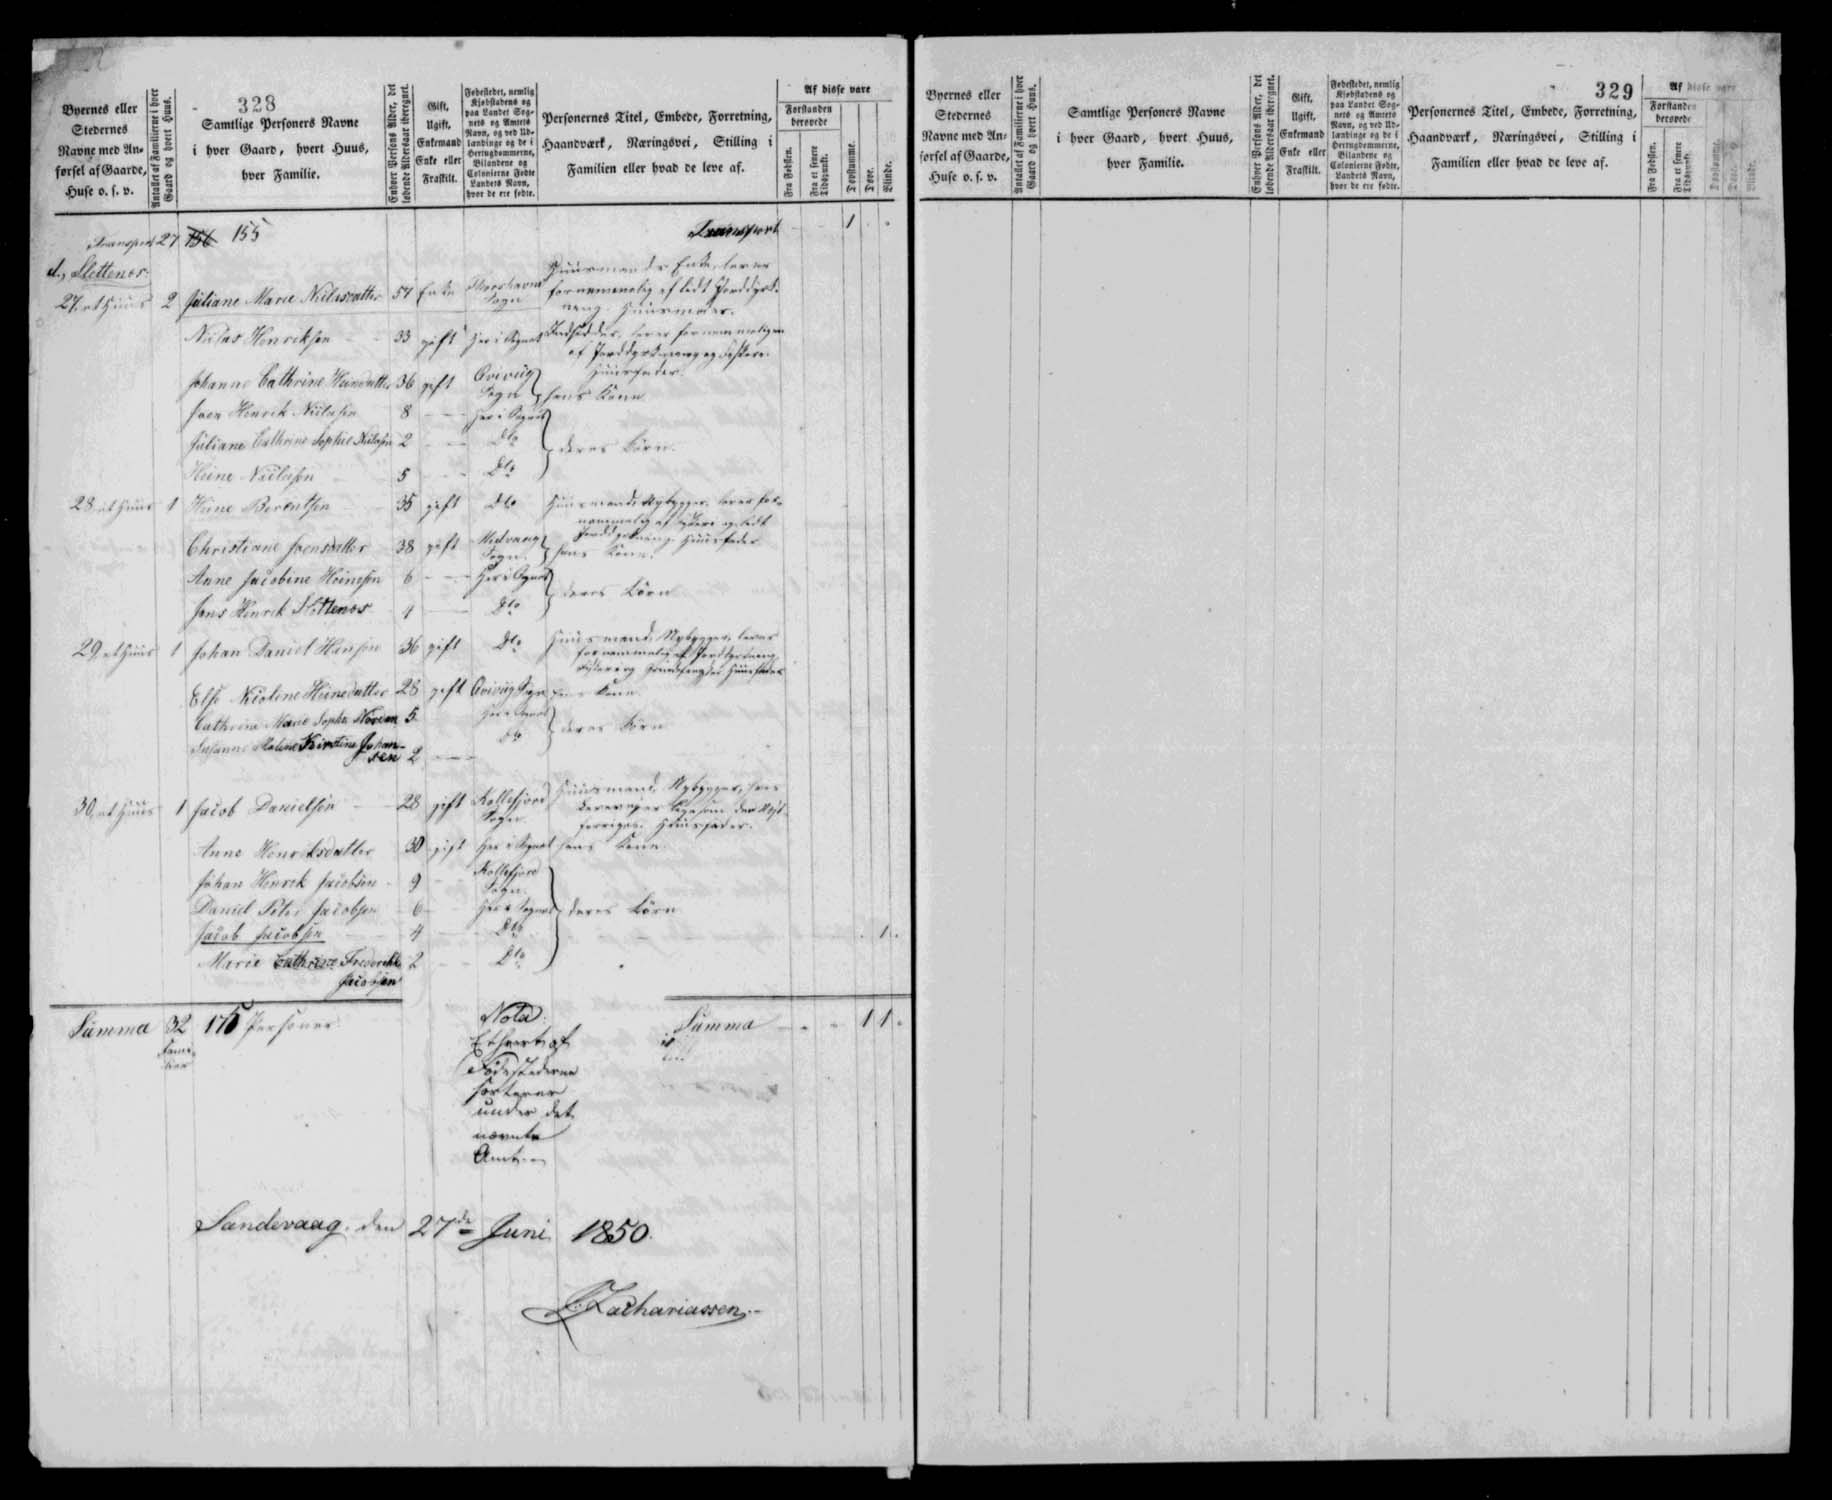 328
Byernes eller Stedernes Navne med Anførsel af Gaarde, Huse o. s. v.
Antallet af Familierne i hver Gaard og hvert Huus.
Samtlige Personers Navne i hver Gaard, hvert Huus, hver Familie.
Enhver Persons Alder, det løbende Aldersaar iberegnet.
Gift, Ugift, Enkemand Enke eller Fraskilt.
Fødestedet, nemlig Kjøbstadens og paa Landet Sognets og Amtets Navn, og ved Udlændinge og de i Hertugdømmerne, Bilandene og Colonierne Fødte Landets Navn, hvor de ere fødte.
Personernes Titel, Embede, Forretning, Haandværk, Næringsvei, Stilling i Familien eller hvad de leve af.
Af disse vare
Forstanden berøvede
Fra Fødslen.
Fra et senere Tidspunkt.
Døvstumme.
Døve.
Blinde.
Transport 27 156 155 Transport 1
d., Slettenæs.
27, et Huus 2 Juliane Marie Niilsdatter 57 Enke Thorshavns Sogn Huusmands Enke, lever
fornemmelig af lidt Jorddyrk-
ning. Huusmoder.
Niilas Henriksen 33 gift Her i Sognet Indsidder, lever fornemmeligen
af Jorddyrkning og Fiskeri.
Huusfader.
Johanne Cathrine Heinedatter 36 gift Qviviig Sogn hans Kone
Joen Henrik Niilasen 8 Her i Sognet
Juliane Cathrine Sophie Niilasen 2 Dto deres Børn.
Heine Niilasen 5 Dto
28, et Huus 1 Heine Berentsen 35 gift Dto Huusmand, Nybygger, lever for-
nemmelig af Fiskeri og lidt
Jorddyrkning. Huusfader
Christiane Joensdatter 38 gift Midvaag Sogn. hans Kone.
Anne Jacobine Heinesen 6 Her i Sognet
Jens Henrik Slettenæs 4 Dto deres Børn
29, et Huus 1 Johan Daniel Hansen 36 gift Dto Huusmand, Nybygger, lever
fornemmelig af Jorddyrkning,
Fiskeri og Huusfader
Else Nicoline Heinedatter 28 gift Qviviig Sogn hans Kone
Cathrine Marie Sophie 5 Her i Sognet
deres Børn
Susanne Malene Kirstine Johan-
sen 2 Dto
30, et Huus 1 Jacob Danielsen 28 gift Kollefjord Sogn. Huusmand, Nybygger, hvis
Næringsvei ligesom den Næst-
forriges. Huusfader.
Anne Henriksdatter 30 gift Her i Sognet hans Kone.
Johan Henrik Jacobsen 9 Kollefjord Sogn.
Daniel Peter Jacobsen 6 Her i Sognet deres Børn
Jacob Jacobsen 4 Dto 1
Marie Cathrine Frederikke
Jacobsen 2 Dto
Summa 32 Fami-
lier 175 Personer. Summa 1 1
Nota.
Ethvert af
Fødestederne
sorterer
under det
nævnte
Amt.
Sandevaag. den 27de Juni 1850.
Zachariassen.
329
Byernes eller Stedernes Navne med Anførsel af Gaarde, Huse o. s. v.
Antallet af Familierne i hver Gaard og hvert Huus.
Samtlige Personers Navne i hver Gaard, hvert Huus, hver Familie.
Enhver Persons Alder, det løbende Aldersaar iberegnet.
Gift, Ugift, Enkemand Enke eller Fraskilt.
Fødestedet, nemlig Kjøbstadens og paa Landet Sognets og Amtets Navn, og ved Udlændinge og de i Hertugdømmerne, Bilandene og Colonierne Fødte Landets Navn, hvor de ere fødte.
Personernes Titel, Embede, Forretning, Haandværk, Næringsvei, Stilling i Familien eller hvad de leve af.
Af disse vare
Forstanden berøvede
Fra Fødslen.
Fra et senere Tidspunkt.
Døvstumme.
Døve.
Blinde.